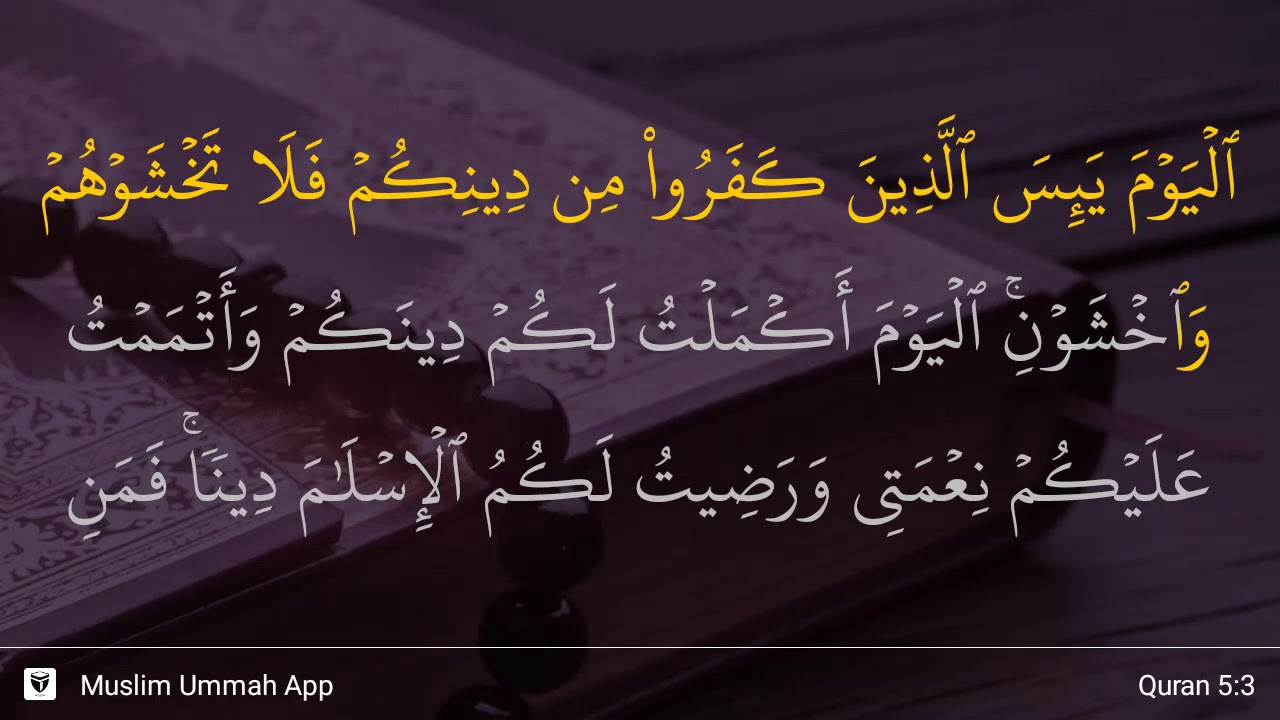 ٱلۡيَوۡمَ يَئِسَ ٱلَّذِينَ كَفَرُواْ مِن دِينِكُمۡ فَلَا تَخۡشَوۡهُمۡ
وَٱخۡشَوۡنِۚ ٱلۡيَوۡمَ أَكۡمَلۡتُ لَكُمۡ دِينَكُمۡ وَأَتۡمَمۡتُ
عَلَيۡكُمۡ نِعۡمَتِي وَرَضِيتُ لَكُمُ ٱلۡإِسۡلَٰمَ دِينٗاۚ فَمَنِ
Muslim Ummah App
Quran 5:3